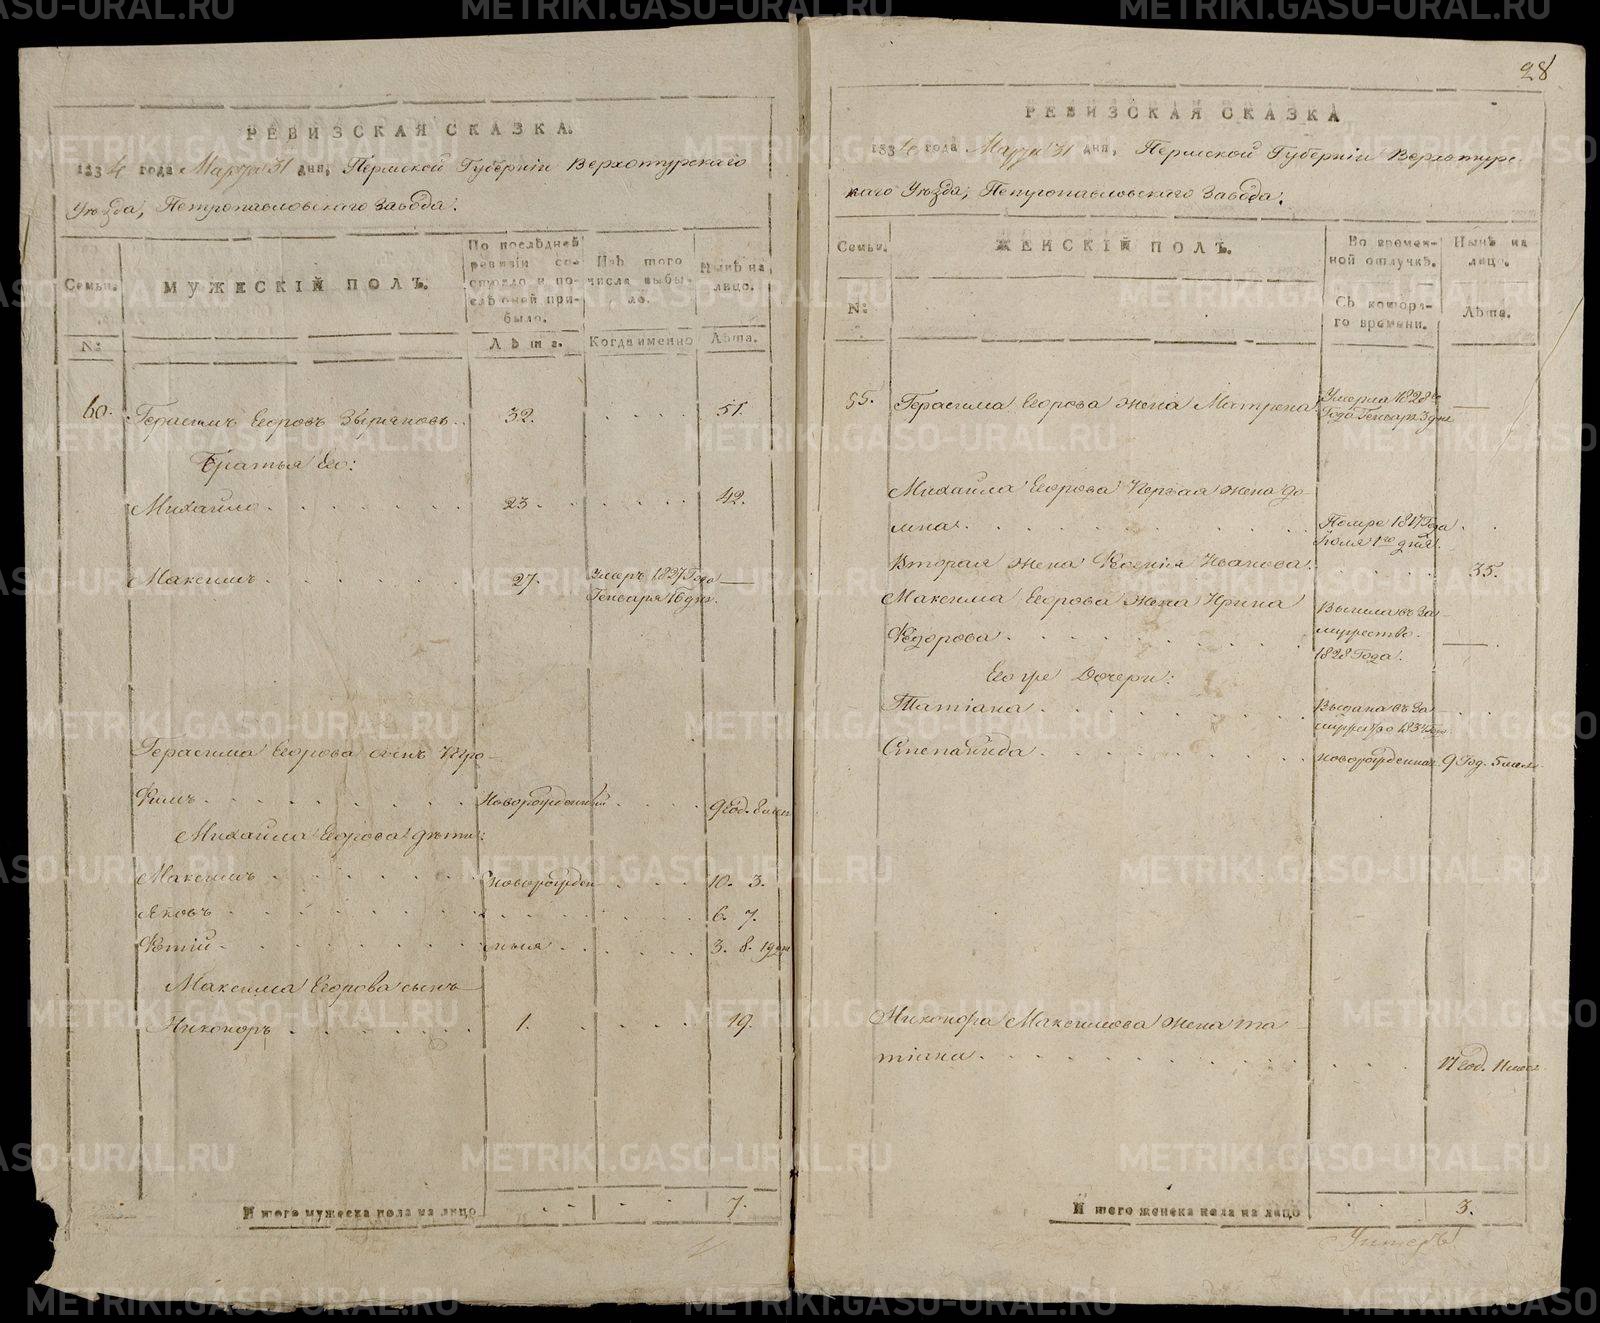 РЕВИЗСКАЯ СКАЗКА.
1834 года Марта 31 дня, Пермской Губерніи Верхотурскаго
Уѣзда, Петропавловскаго Завода.
Семьи.
№:
МУЖЕСКІЙ ПОЛЪ.
По послѣдней
ревизіи со-
стояло и по-
слѣ оной при-
было.
Лѣта.
Изъ того
числа выбы-
ло.
Когда именно
Нынѣ на
лицо.
Лѣта.
60. Герасимъ Егоровъ Зыряновъ. 32. 51.
Братья Его:
Михайло 23. 42.
Максимъ 27. Умеръ 1827 Года
Генваря 16 дня.
Герасима Егорова сынъ Тро-
фимъ Новорожденный 9 год. 8 мес.
Михайла Егорова дѣти:
Максимъ новорожден 10. 3.
Яковъ 6. 7.
Фотій ныя 3. 8. 19 дн
Максима Егорова сынъ
Никоноръ 1. 19.
И того мужеска пола на лицо 7.
28
РЕВИЗСКАЯ СКАЗКА
1834 года Марта 31 дня, Пермской Губерніи Верхотурс-
каго Уѣзда, Петропавловскаго Завода.
Семьи.
№:
ЖЕНСКІЙ ПОЛЪ.
Во времен-
ной отлучкѣ.
Съ котора-
го времени.
Нынѣ на
лицо.
Лѣта.
55. Герасима Егорова жена Матрена Умерла 1828
Года Генваря 3 дня
Михайла Егорова Первая жена До-
мна Помре 1817 Года
Іюля 1го дня.
Вторая жена Ксенія Иванова 35.
Максима Егорова жена Ирина Вышла въ За-
Федорова мужество
1828 Года.
Его же Дочери:
Татіана Выдана въ За-
Степанида новорожденная 9 Год. 5 мес.
Никонора Максимова жена та-
тіана 17 год. 11 мес.
И того женска пола на лицо 3.
METRIKI.GASO-URAL.RU